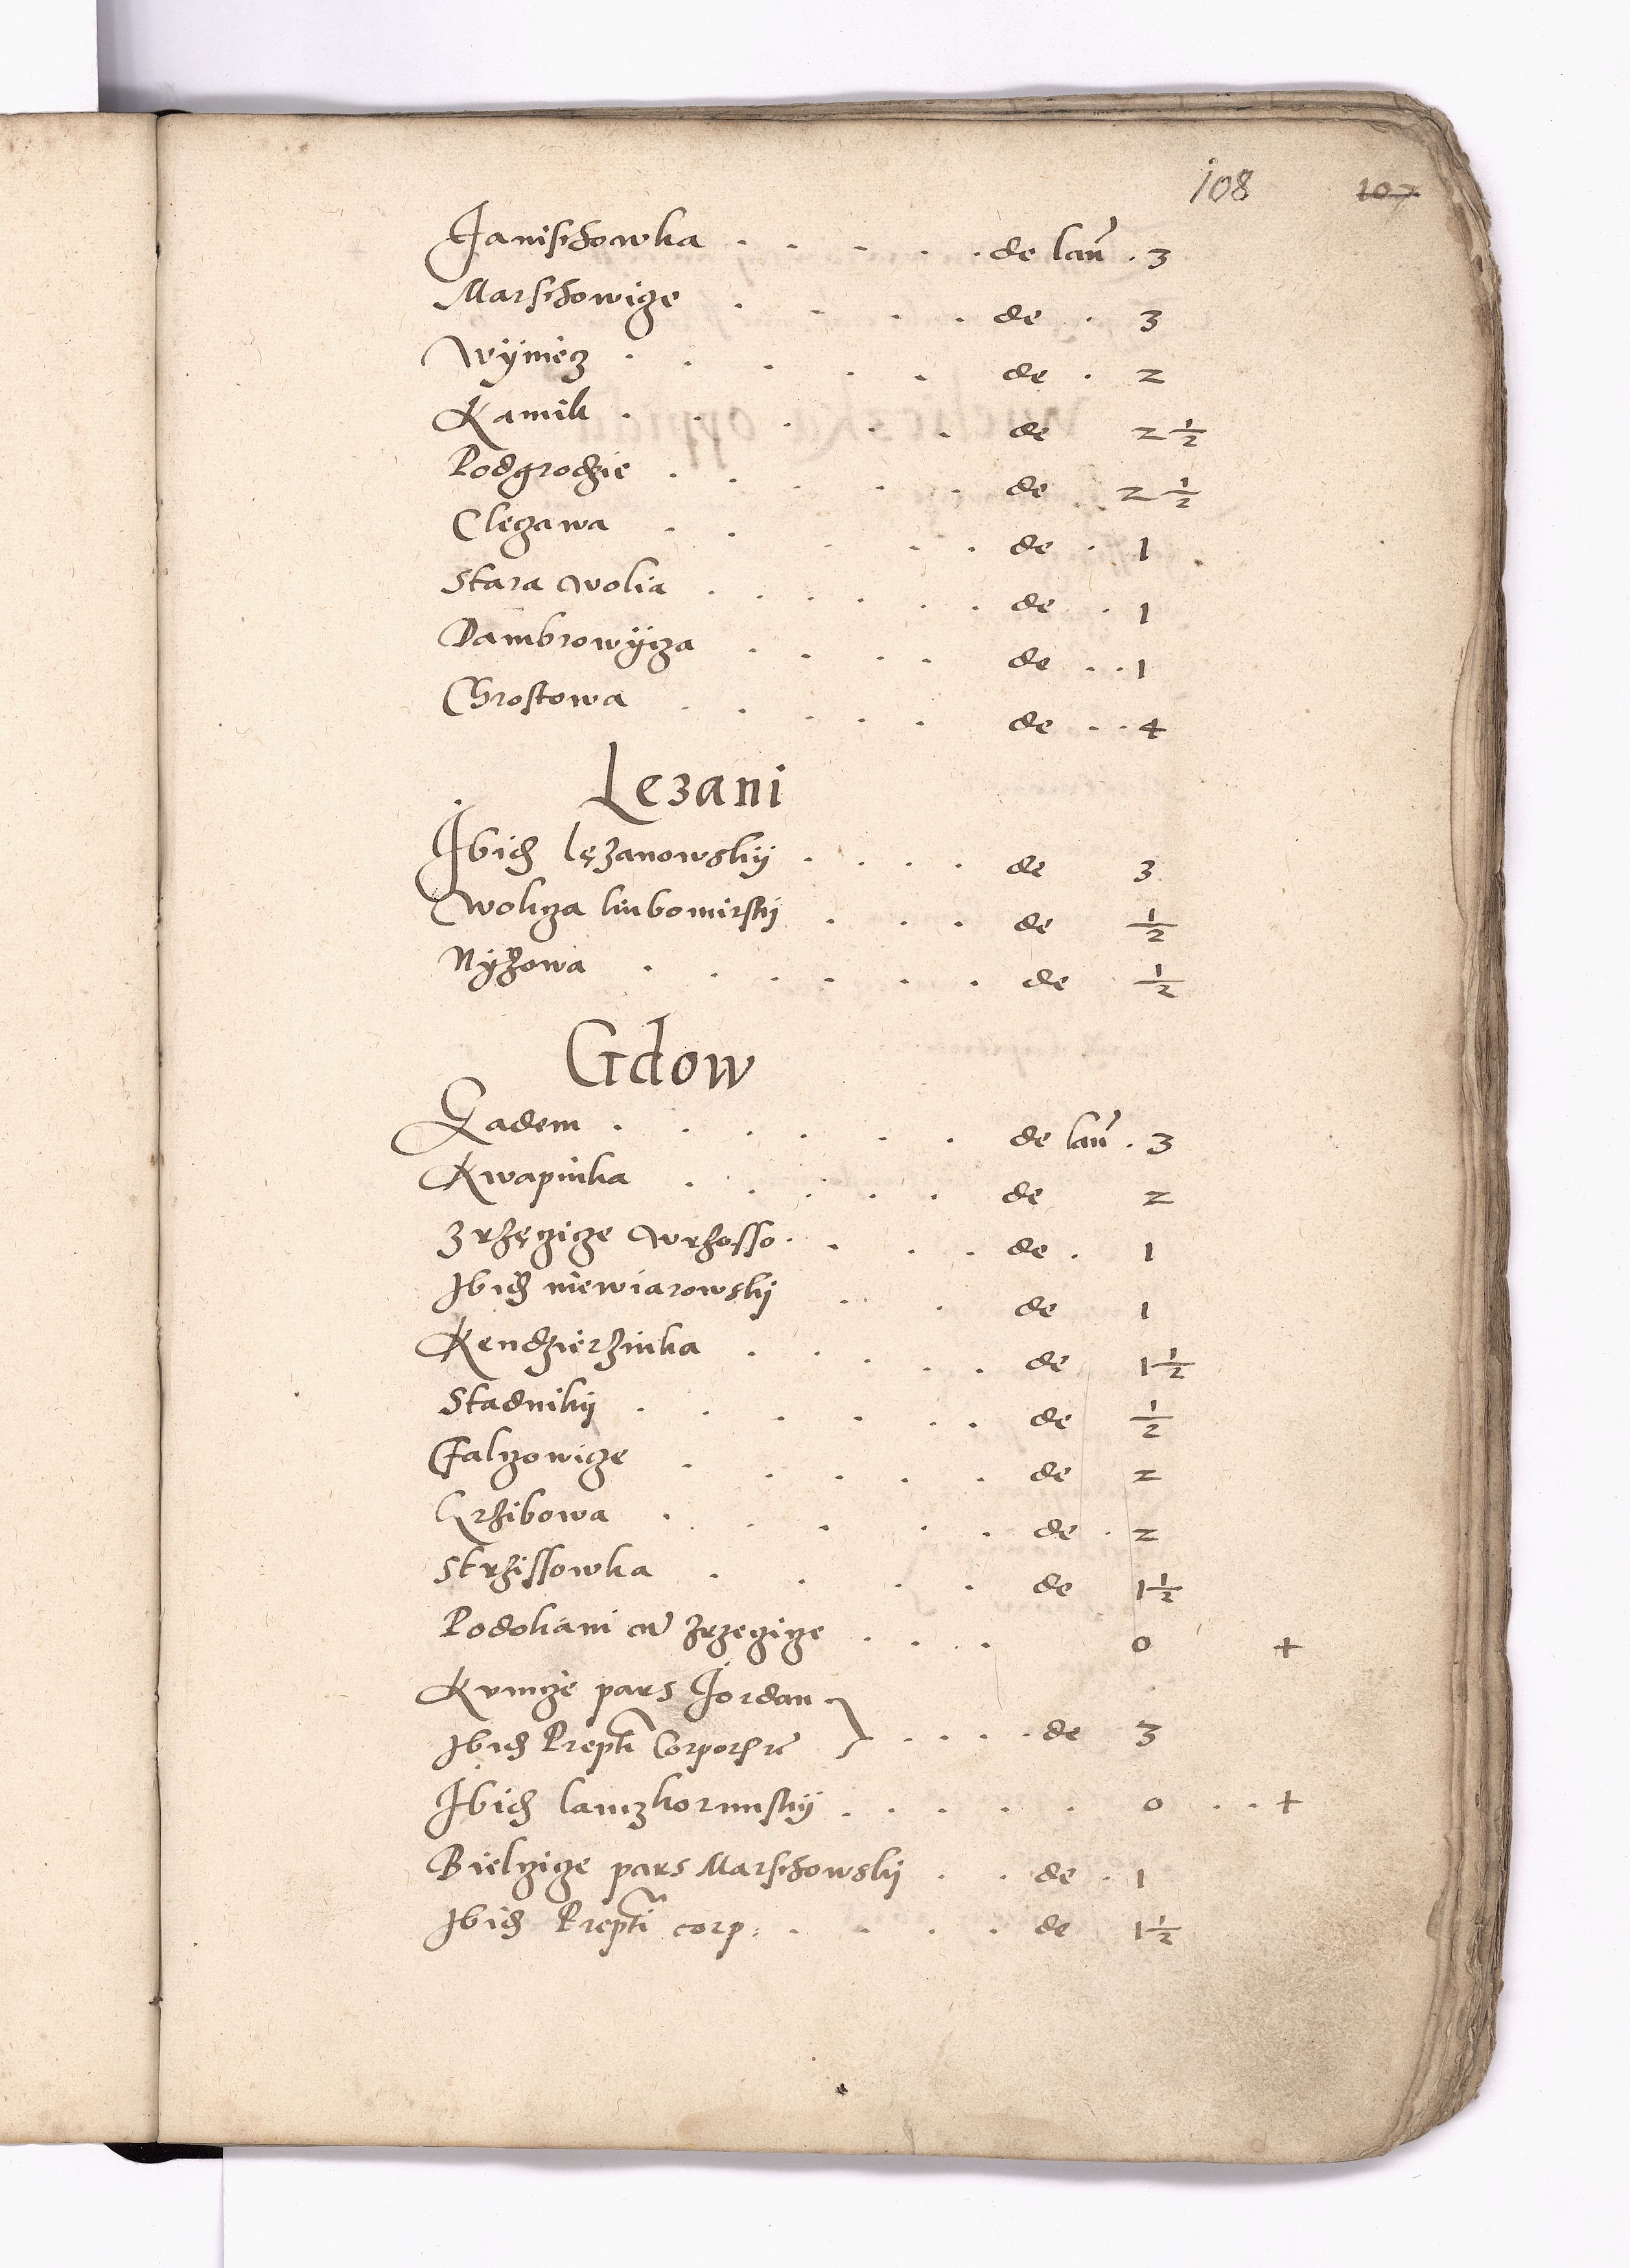 108 107
Janischowka . . . . . de lan̄ . 3
Marschowicze . . . . de . 3
Wÿniecz . . . . . de . 2
Kamik . . . . . de 2 1/2
Podgrodzie . . . . . de 2 1/2
Clęczawa . . . . . de . 1
Stara wolia . . . . . . de . . 1
Dambrowÿcza . . . . de . . 1
Chrostowa . . . . . de . . 4
Lezani
Ibid lęzanowskÿ . . . . de 3
Wolicza liubomirskÿ . . . de 1/2
Nÿzowa . . . . . . de 1/2
Gdow
Eadem . . . . . . de lan̄ . 3
Kwapinka . . . . . de 2
Zrzęczicze Wrzosso . . . . de . 1
Ibid niewiarowskÿ . . . de 1
Kendzierzinka . . . . . de 1 1/2
Stadnikÿ . . . . . . de 1/2
Falczowicze . . . . . de 2
Grzibowa . . . . . de . 2
Strzissowka . . . . de 1 1/2
Podoliani cū Zrzeczicze . . . . 0 +
Kunicze pars Jordan .
Ibid Prepti Corporis . . . . . de 3
Ibid lanczkorunskÿ . . . . . 0 . . +
Bielczicze pars Marschowskÿ . . de . 1
Ibid Prepti corp: . . . . de 1 1/2